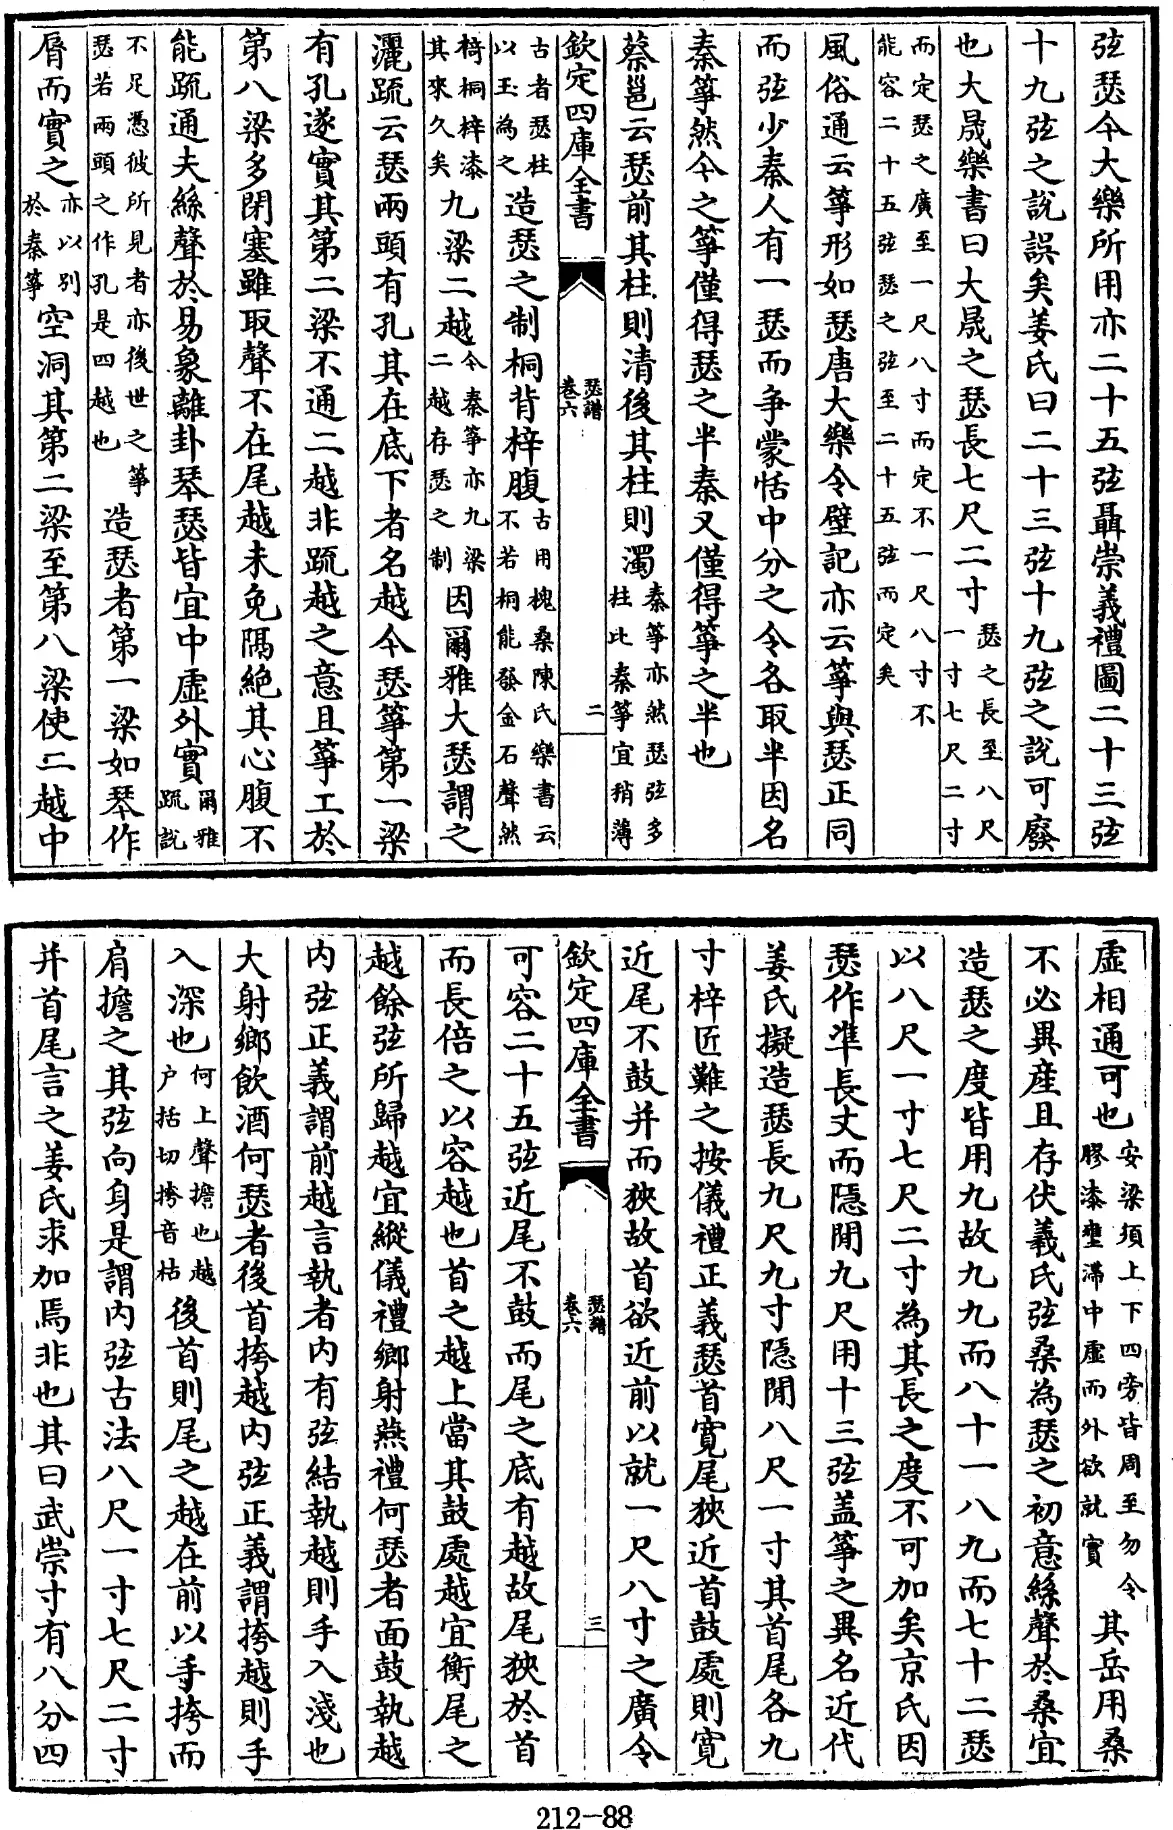 弦瑟今大樂所用亦二十五弦聶崇義禮圖二十三弦
十九弦之說誤矣姜氏曰二十三弦十九弦之說可廢
也大晟樂書曰大晟之瑟長七尺二寸瑟之長至八尺一寸七尺二寸
而定瑟之廣至一尺八寸而定不一尺八寸不能容二十五弦瑟之弦至二十五弦而定矣
風俗通云箏形如瑟唐大樂令壁記亦云箏與瑟正同
而弦少秦人有一瑟而爭蒙恬中分之令各取半因名
秦箏然今之箏僅得瑟之半秦又僅得箏之半也
蔡邕云瑟前其柱則清後其柱則濁秦箏亦然瑟弦多柱此秦箏宜稍薄
欽定四庫全書 瑟譜 卷六 二
古者瑟柱以玉為之造瑟之制桐背梓腹古用槐桑陳氏樂書云不若桐能發金石聲然
椅桐梓漆其來久矣九梁二越今秦箏亦九梁二越存瑟之制因爾雅大瑟謂之
灑疏云瑟兩頭有孔其在底下者名越今瑟箏第一梁
有孔遂實其第二梁不通二越非疏越之意且箏工於
第八梁多閉塞雖取聲不在尾越未免隔絕其心腹不
能疏通夫絲聲於易象離卦琴瑟皆宜中虛外實爾雅疏說
不足憑彼所見者亦後世之箏瑟若兩頭之作孔是四越也造瑟者第一梁如琴作
脣而實之亦以別於秦箏空洞其第二梁至第八梁使二越中
虛相通可也安梁須上下四旁皆周至勿令膠漆壅滯中虛而外欲就實其岳用桑
不必異產且存伏羲氏弦桑為瑟之初意絲聲於桑宜
造瑟之度皆用九故九九而八十一八九而七十二瑟
以八尺一寸七尺二寸為其長之度不可加矣京氏因
瑟作準長丈而隱閒九尺用十三弦蓋箏之異名近代
姜氏擬造瑟長九尺九寸隱閒八尺一寸其首尾各九
寸梓匠難之按儀禮正義瑟首寬尾狹近首鼓處則寬
近尾不鼓并而狹故首欲近前以就一尺八寸之廣令
欽定四庫全書 瑟譜 卷六 三
可容二十五弦近尾不鼓而尾之底有越故尾狹於首
而長倍之以容越也首之越上當其鼓處越宜衡尾之
越餘弦所歸越宜縱儀禮鄉射燕禮何瑟者面鼓執越
內弦正義謂前越言執者內有弦結執越則手入淺也
大射鄉飲酒何瑟者後首挎越內弦正義謂挎越則手
入深也何上聲擔也越户括切挎音枯後首則尾之越在前以手挎而
肩擔之其弦向身是謂內弦古法八尺一寸七尺二寸
并首尾言之姜氏求加焉非也其曰武崇寸有八分四
212-88